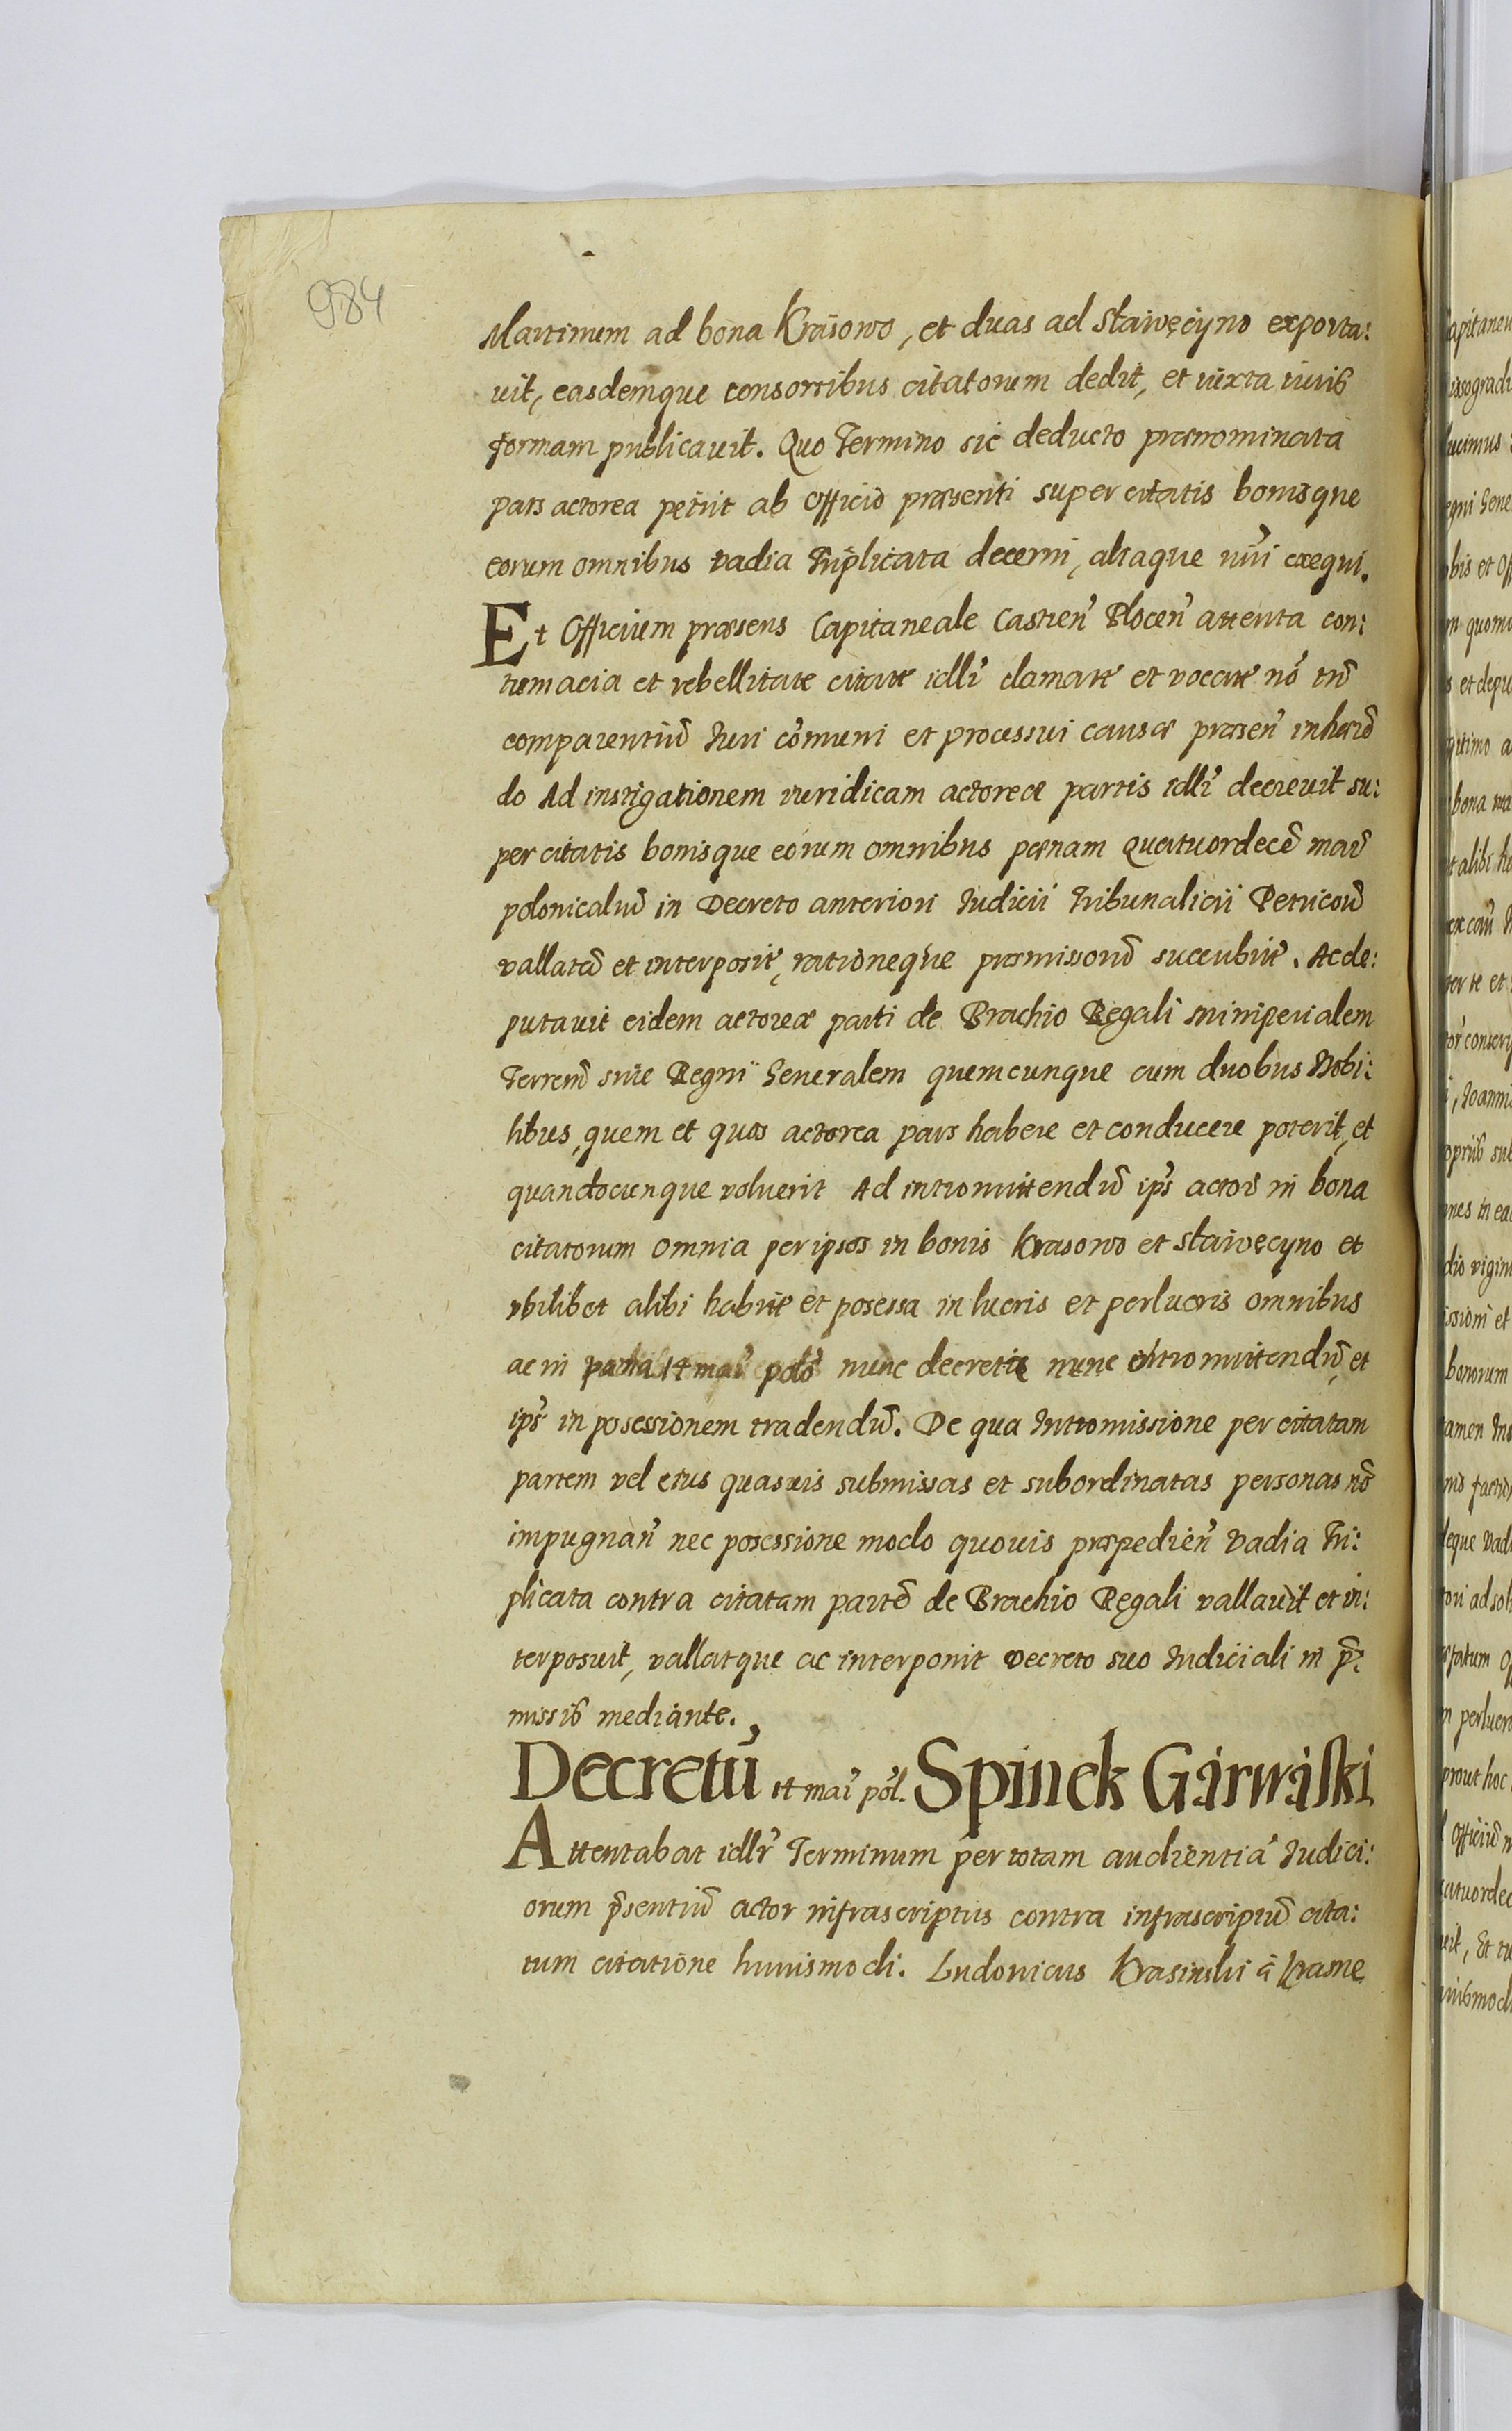 984
Martinum ad bona Krasowo, et duas ad Sławęcyno exporta:
uit, easdemque consortibus citatorum dedit, et iuxta iuris
formam publicauit. Quo Termino sic deducto prænominata
pars actorea petiit ab Officio præsenti super citatis bonisque
eorum omnibus vadia Triplicata decerni, aliaque iuri exequi.
Et Officium præsens Capitaneale Castren̄ Plocen̄ attenta con:
tumacia et rebellitate citatæ idlr̄ clamatæ et vocatæ nō tn̄
comparentiū Iuri cōmuni et processui causæ præsen̄ inhærē
do Ad instigationem iuridicam actoreæ partis idlr̄ decreuit su:
per citatis bonisque eorum omnibus pænam Quatuordecē mar̄
polonicaliū in Decreto anteriori Iudicii Tribunalicii Petricoū
vallatā et interpositā, rationeque præmissorū succubitæ. Ac de:
putauit eidem actoreæ parti de Brachio Regali Ministerialem
Terrenū siue Regni Generalem quemcunque cum duobus Nobi:
libus, quem et quos actorea pars habere et conducere poterit, et
quandocunque voluerit Ad intromittendū ips̄ actorē in bona
citatorum omnia per ipsos in bonis Krasowo et Sławęcyno et
vbilibet alibi habita et posessa in lucris et perlucris omnibus
ac in 14 mar̄ polo nunc decretis nunc intromittendū, et
ips̄ in posessionem tradendū. De qua Intromissione per citatam
partem vel eius quasuis submissas et subordinatas personas nō
impugnan̄ nec posessione modo quouis præpedien̄ vadia Tri:
plicata contra citatam partē de Brachio Regali vallauit et in:
terposuit, vallatque ac interponit Decreto suo Iudiciali in p̄:
missis mediante.
Decretū 14 mar̄ pol. Spinek Garwaſki
Attentabat idlr̄ Terminum per totam audientiā Iudici:
orum p̄sentiū actor infrascriptus contra infrascriptū cita:
tum citatione huiusmodi. Ludouicus Krasinski à Krasne